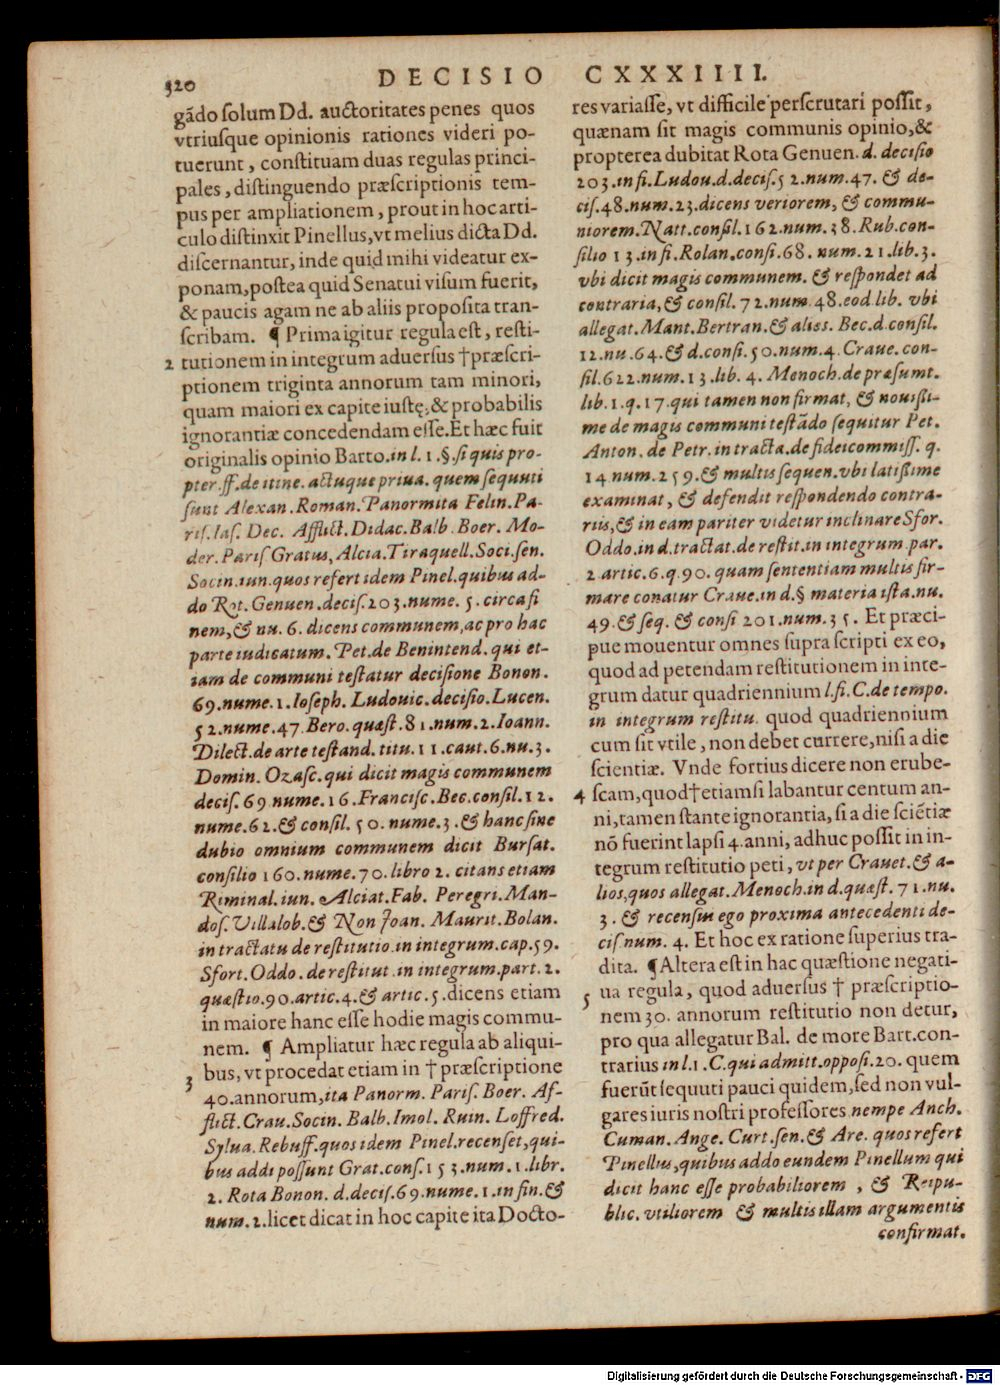 320 DECISIO CXXXIIII.
gãdo solum Dd. auctoritates penes quos
vtriusque opinionis rationes videri po-
tuerunt, constituam duas regulas princi-
pales, distinguendo præscriptionis tem-
pus per ampliationem, prout in hoc arti-
culo distinxit Pinellus, vt melius dicta Dd.
discernantur, inde quid mihi videatur ex-
ponam, postea quid Senatui visum fuerit,
& paucis agam ne ab aliis proposita tran-
scribam. ¶ Prima igitur regula est, resti-
2 tutionem in integrum aduersus † præscri-
ptionem triginta annorum tam minori,
quam maiori ex capite iustę, & probabilis
ignorantiæ concedendam esse. Et hæc fuit
originalis opinio Barto. in l. 1. §. si quis pro-
pter. ff. de itine. actuque priua. quem sequuti
sunt Alexan. Roman. Panormita Felin. Pa-
ris. Ias. Dec. Afflict. Didac. Balb. Boer. Mo-
der. Paris Gratus, Alcia. Tiraquell. Soci. sen.
Socin. iun. quos refert idem Pinel. quibus ad-
do Rot. Genuen. decis. 203. nume. 5. circa fi
nem, & nu. 6. dicens communem, ac pro hac
parte iudicatum. Pet. de Benintend. qui et-
iam de communi testatur decisione Bonon.
69. nume. 1. Ioseph. Ludouic. decisio. Lucen.
52. nume. 47 Bero. quæst. 81. num. 2. Ioann.
Dilect. de arte testand. titu. 11. caut. 6. nu. 3.
Domin. Ozasc. qui dicit magis communem
decis. 69 nume. 16. Francisc. Bec. consil. 12.
nume. 62. & consil. 50. nume. 3. & hanc sine
dubio omnium communem dicit Bursat.
consilio 160. nume. 70. libro 2. citans etiam
Riminal. iun. Alciat. Fab. Peregri. Man-
dos. Villalob. & Non Joan. Maurit. Bolan.
in tractatu de restitutio. in integrum. cap. 59.
Sfort. Oddo. de restitut. in integrum. part. 2.
quæstio. 90. artic. 4. & artic. 5. dicens etiam
in maiore hanc esse hodie magis commu-
nem. ¶ Ampliatur hæc regula ab aliqui-
3 bus, vt procedat etiam in † præscriptione
40. annorum, ita Panorm. Paris. Boer. Af-
flict. Crau. Socin. Balb. Imol. Ruin. Loffred.
Sylua. Rebuff. quos idem Pinel. recenset, qui-
bus addi possunt Grat. cons. 153. num. 1. libr.
2. Rota Bonon. d. decis. 69. nume. 1. in fin. &
num. 2. licet dicat in hoc capite ita Docto-
res variasse, vt difficile perscrutari possit,
quænam sit magis communis opinio, &
propterea dubitat Rota Genuen. d. decisio
203. in fi. Ludou. d. decis. 52. num. 47. & de-
cis. 48. num. 23. dicens veriorem, & commu-
niorem. Natt. consil. 162. num. 38. Rub. con-
silio 13. in fi. Rolan. consi. 68. num. 21. lib. 3.
vbi dicit magis communem. & respondet ad
contraria, & consil. 72. num. 48. eod lib. vbi
allegat. Mant. Bertran. & alios. Bec. d. consil.
12. nu. 64. & d. consi. 50. num. 4. Craue. con-
sil. 622. num. 13. lib. 4. Menoch. de præsumt.
lib. 1. q. 17. qui tamen non firmat, & nouissi-
me de magis communi testãdo sequitur Pet.
Anton. de Petr. in tracta. de fideicommiss. q.
14 num. 259. & multis sequen. vbi latissime
examinat, & defendit respondendo contra-
riis, & in eam pariter videtur inclinare Sfor.
Oddo. in d. tractat. de restit. in integrum. par.
2. artic. 6. q. 90. quam sententiam multis fir-
mare conatur Craue. in d. § materia ista. nu.
49. & seq. & consi 201. num. 35. Et præci-
pue mouentur omnes supra scripti ex eo,
quod ad petendam restitutionem in inte-
grum datur quadriennium l. fi. C. de tempo.
in integrum restitu. quod quadriennium
cum sit vtile, non debet currere, nisi a die
scientiæ. Vnde fortius dicere non erube-
4 scam, quod † etiamsi labantur centum an-
ni, tamen stante ignorantia, si a die sciẽtiæ
nõ fuerint lapsi 4. anni, adhuc possit in in-
tegrum restitutio peti, vt per Crauet. & a-
lios, quos allegat. Menoch. in d. quæst. 71. nu.
3. & recensui ego proxima antecedenti de-
cis. num. 4. Et hoc ex ratione superius tra-
dita. ¶ Altera est in hac quæstione negati-
5 ua regula, quod aduersus † præscriptio-
nem 30. annorum restitutio non detur,
pro qua allegatur Bal. de more Bart. con-
trarius in l. 1. C. qui admitt. opposi. 20. quem
fuerũt sequuti pauci quidem, sed non vul-
gares iuris nostri professores nempe Anch.
Cuman. Ange. Curt. sen. & Are. quos refert
Pinellus, quibus addo eundem Pinellum qui
dicit hanc esse probabiliorem, & Reipu-
blic. vtiliorem & multis illam argumentis
confirmat.
Digitalisierung gefördert durch die Deutsche Forschungsgemeinschaft - DFG